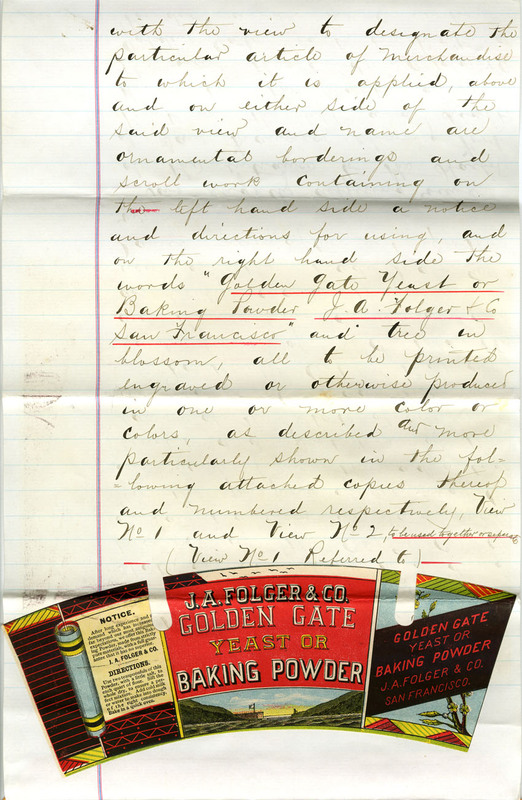 with the view to designate the
particular article of Merchandise
to which it is applied, above
and on either side of the
said view and name are
ornamental borderings and
scroll work containing on
the left hand side a notice
and directions for using, and
on the right hand side the
words "Golden Gate Yeast or
Baking Powder J. A. Folger & Co
San Francisco" and tree in
blossom, all to be printed
engraved or otherwise produced
in one or more color or
colors, as described and more
particularly shown in the fol=
=lowing attached copies thereof
and numbered respectively, View
No 1 and View No 2, to be used together or
(View No 1 Referred to)
NOTICE.
After long experience and
J. A. FOLGER & CO.
DIRECTIONS.
Use two teaspoonfuls of this
Bake in a quick oven.
J. A. FOLGER & CO.
GOLDEN GATE
YEAST OR
BAKING POWDER
GOLDEN GATE
YEAST OR
BAKING POWDER
J. A. FOLGER & CO.
SAN FRANCISCO.